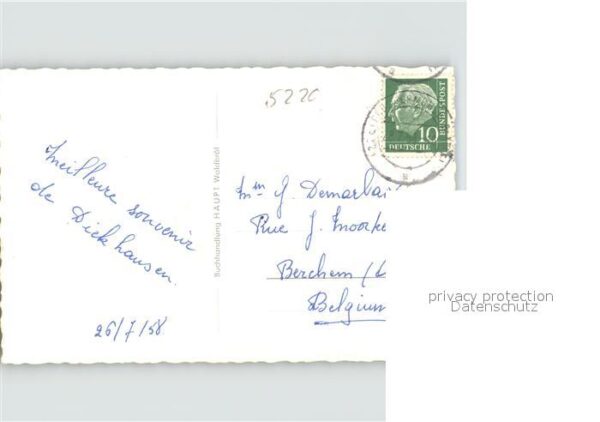 5220
Meilleure souvenir
de Dickhausen.
26/7/58
Buchhandlung HAUPT Waldbröl
10
DEUTSCHE
BUNDESPOST
Mm J. Demarbai
Rue J. Moorke
Berchem
Belgium
privacy protection
Datenschutz